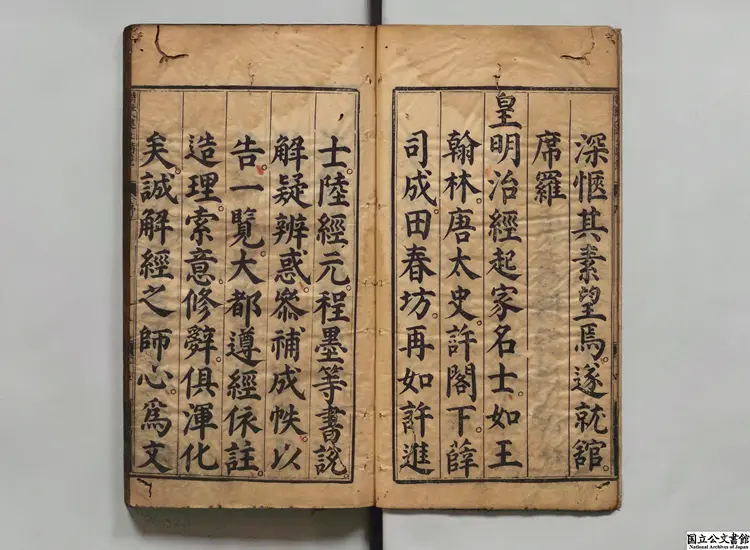 深愜其素望焉。遂就舘。
席羅
皇明治經起家名士。如王
翰林。唐太史。許閣下。薛
司成。田春坊。再如許進
士。陸經元。程墨等書說。
解疑辨惑。叅補成帙。以
告一覽。大都遵經依註。
造理索意。修辭俱渾化
矣。誠解經之師心。爲文
国立公文書館
National Archives of Japan